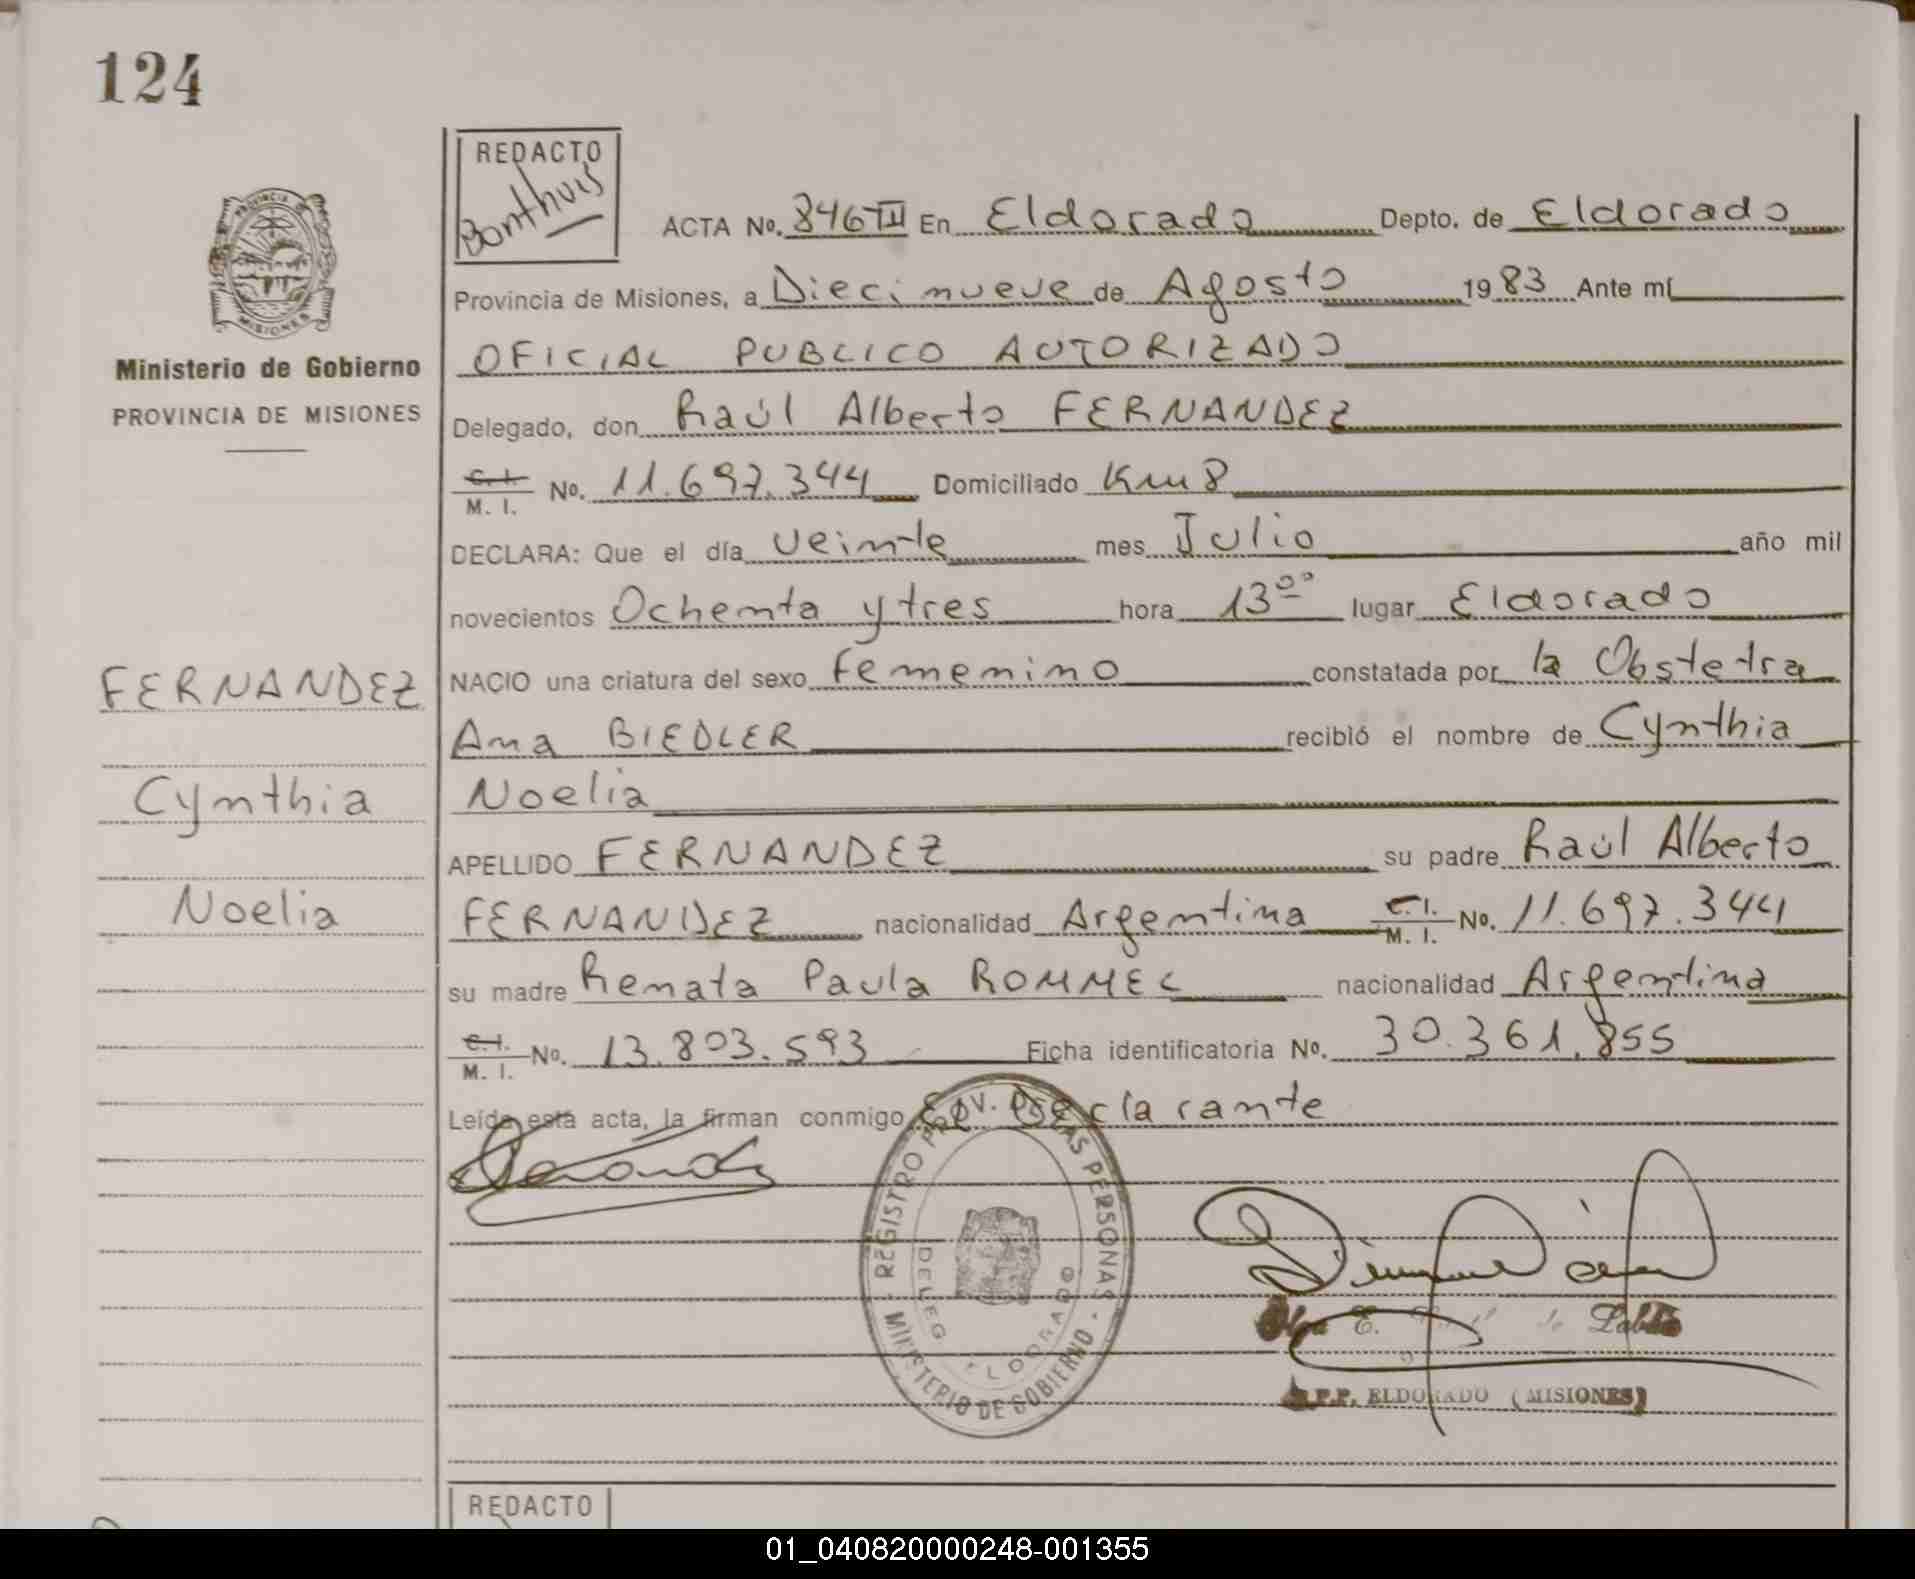 124
REDACTO
Bonthuis
PROVINCIA DE
MISIONES
Ministerio de Gobierno
PROVINCIA DE MISIONES
ACTA No. 846 III En Eldorado Depto. de Eldorado
Provincia de Misiones, a Diecinueve de Agosto 1983 Ante mí
OFICIAL PUBLICO AUTORIZADO
Delegado, don Raúl Alberto FERNANDEZ
C. I. M. I. No. 11.697.344 Domiciliado Km 8
DECLARA: Que el día veinte mes Julio año mil
novecientos Ochenta y tres hora 13 00 lugar Eldorado
NACIO una criatura del sexo femenino constatada por la Obstetra
Ana BIEDLER recibió el nombre de Cynthia
Noelia
APELLIDO FERNANDEZ su padre Raúl Alberto
FERNANDEZ nacionalidad Argentina C. I. M. I. No. 11.697.344
su madre Renata Paula ROMMEL nacionalidad Argentina
C. I. M. I. No. 13.803.593 Ficha identificatoria No. 30.361.855
Leída está acta, la firman conmigo El Declarante
FERNANDEZ
Cynthia
Noelia
REGISTRO PROV. DE LAS PERSONAS - MINISTERIO DE GOBIERNO -
DELEG ELDORADO
E. de
R.P.P. ELDORADO (MISIONES)
REDACTO
01_040820000248-001355